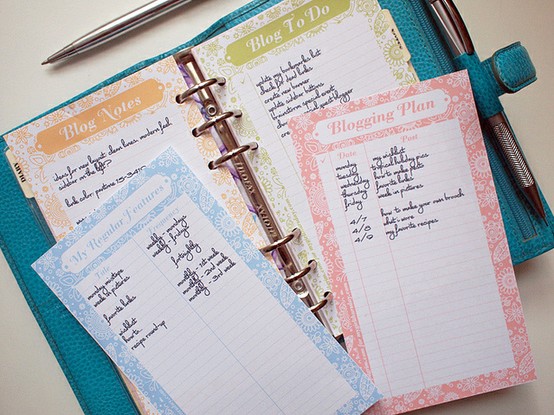 Blog To Do
update my bookmarks list
check for dead links
create new banner
update sidebar buttons
brainstorm special event
Blog Notes
ideas for new layout: clean lines, modern feel
sidebar on the left?
link color: pantone
DIARY
Blogging Plan
Date Post
monday my wishlist
tuesday typical holiday pics
wednesday how to make pesto
thursday favorite links
friday week in pictures
4/7 how to make your own brooch
4/8 what i wore
4/9 my favorite recipes
My Regular Features
monday mixtape weekly - mondays
week in pictures weekly - fridays
favorite links fortnightly
wishlist monthly - 1st week
how to... monthly - 2nd week
recipe round-up monthly - 3rd week